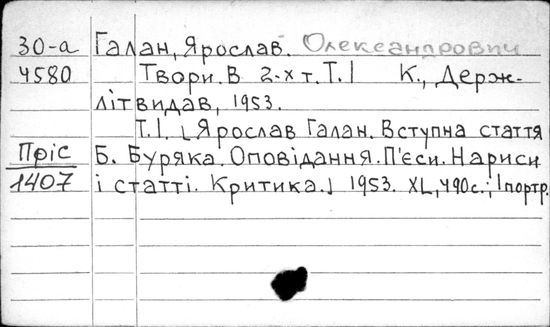 30-а Галан, Ярослав. Олександрович
4580 Твори. В 2-х т. Т. I К., Держ-
літвидав, 1953.
Т. I. [Ярослав Галан. Вступна стаття
Пріс Б. Буряка. Оповідання. П'єси. Нариси
1407 і статті. Критика.] 1953. XL, 490с.; 1портр.